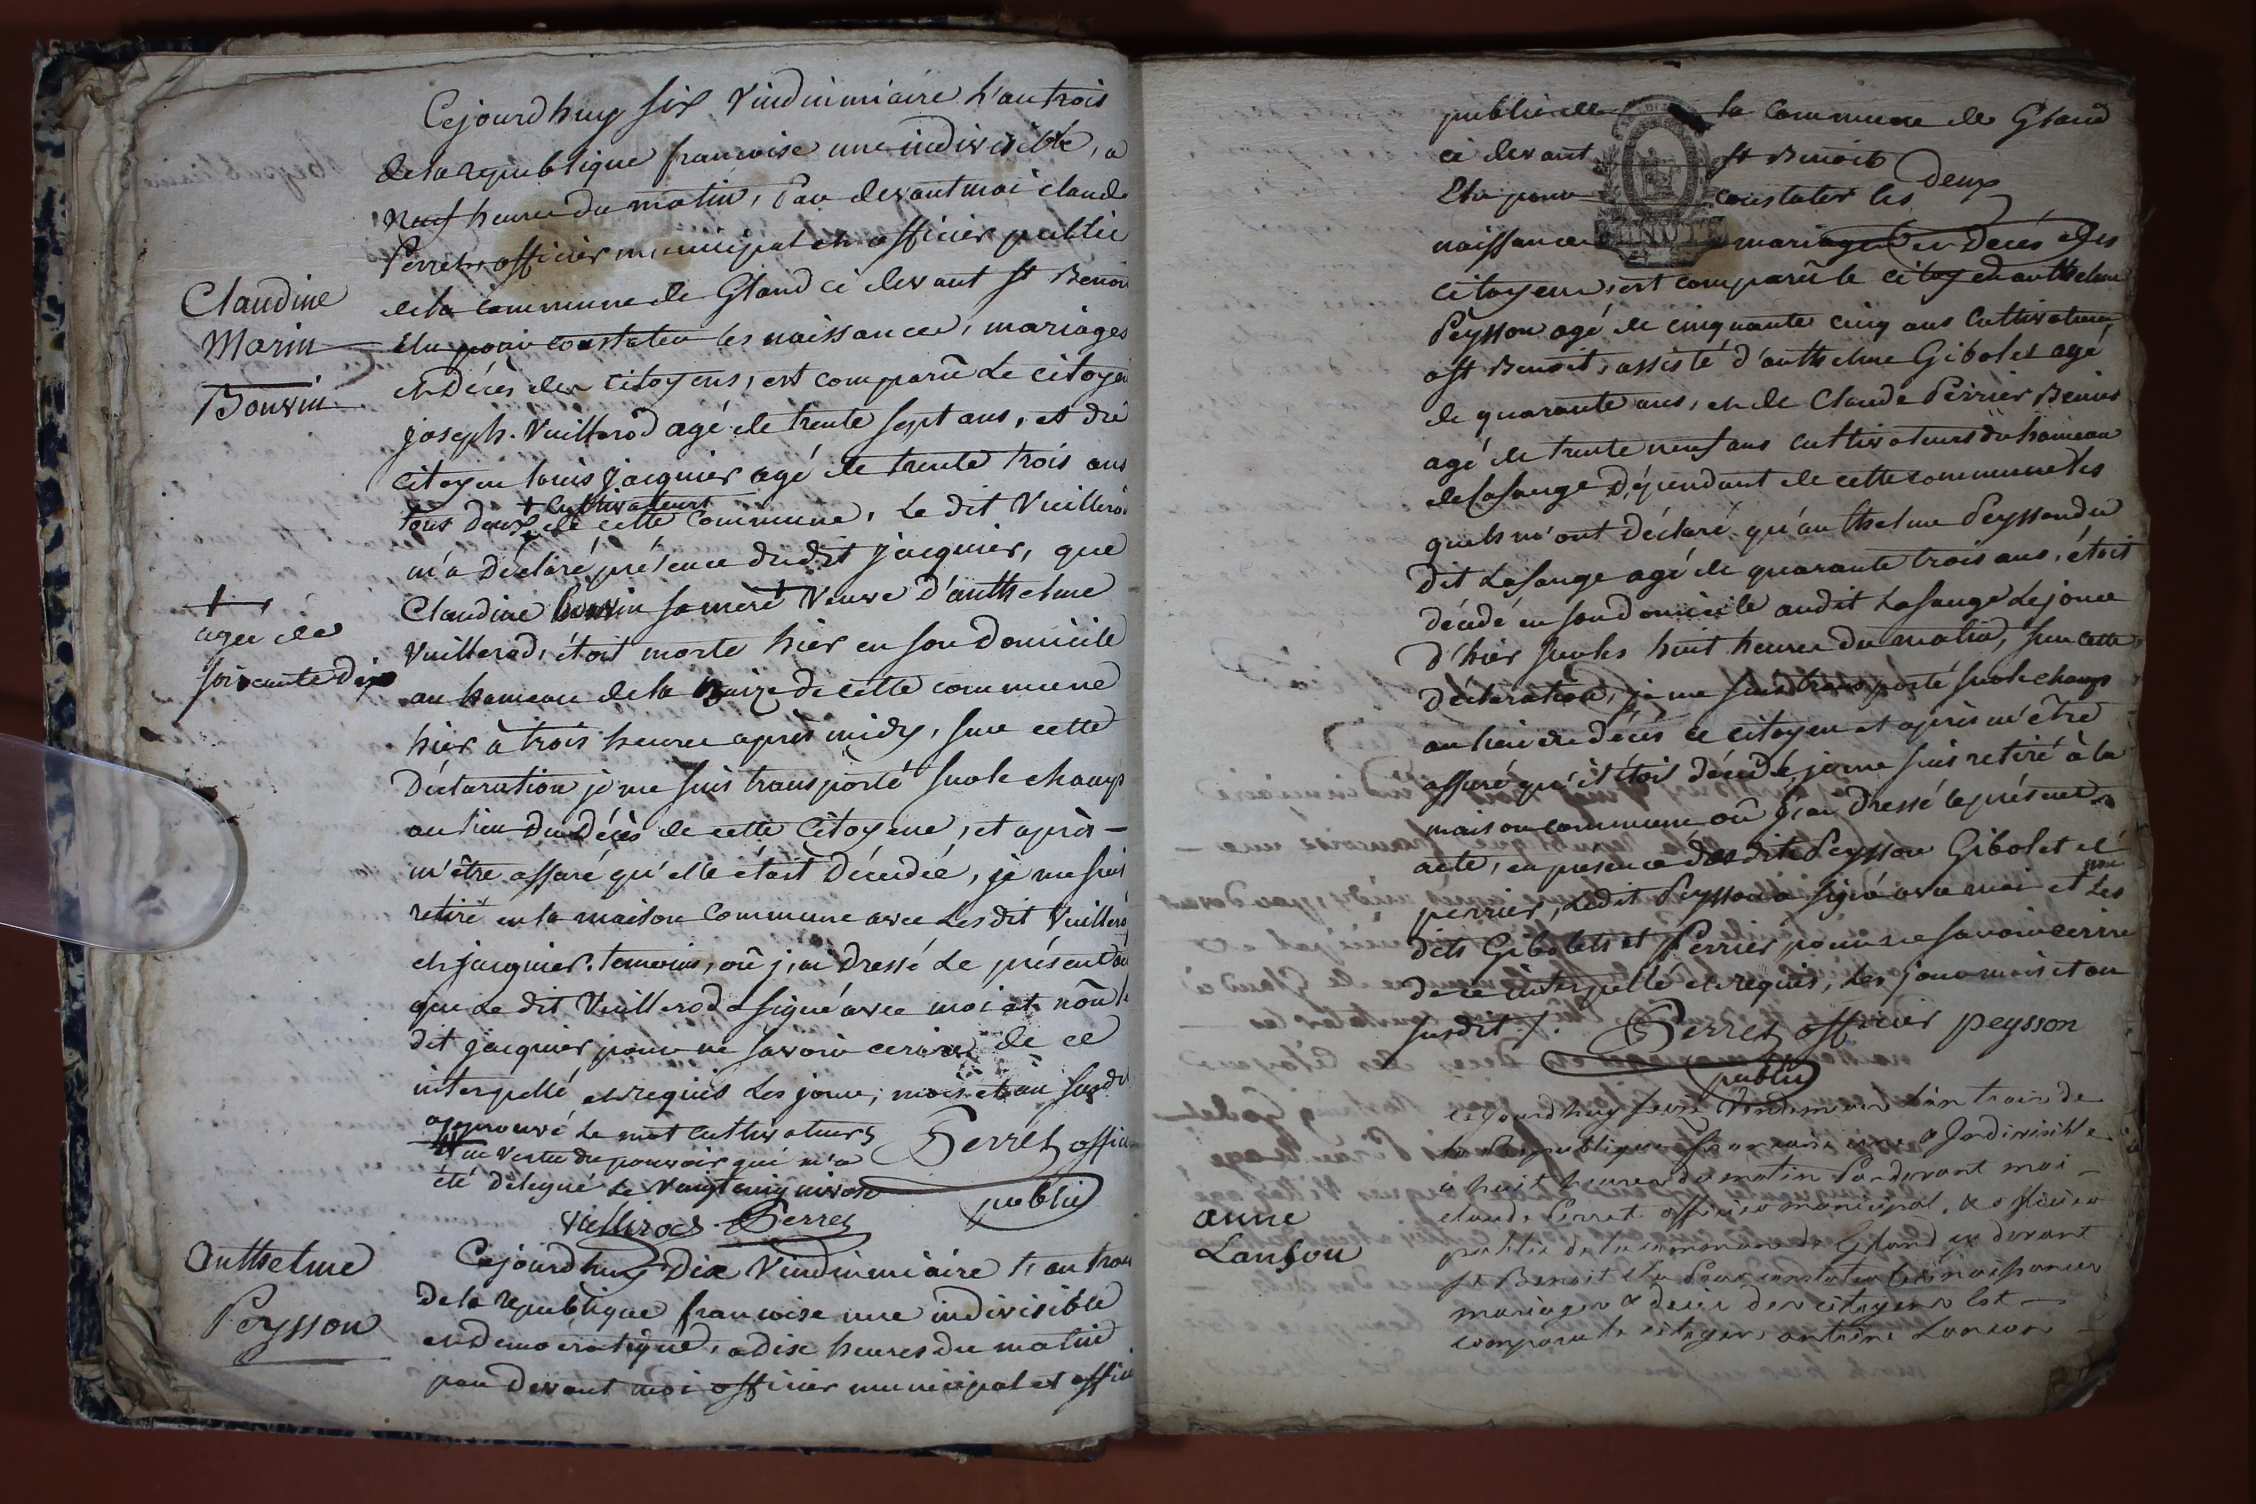 Cejourd huy six Vindimiaire L'an trois
de la republique francoise une indivisible, a
Neuf heures du matin, Par devant moi claude
Perret, officier municipal et officier public
de la commune de Gland ci devant st Benoit
Elu pour constater les naissances, mariages
et Décès des citoyens, est comparû Le citoyen
joseph. Vuillerod agé de trente sept ans, et du
citoyen louis jacquier agé de trente trois ans
+ Cultivateurs
tous deux de cette commune, Le dit Vuillerod
m'a déclaré présence du dit jacquier, que
Claudine Bonvin sa mere + Veuve d'anthelme
Vuillerod, étoit morte hier en son Domicile
au hameau de la de cette commune
hier à trois heures après midy, sur cette
Déclaration je me suis transporté sur le champ
au lieu du Décès de cette Citoyene, et après –
m'être assuré qu'elle étoit Décedée, je me suis
retiré en la maison commune avec Les dit Vuillerod
et jacquier, temoins, où j'ai Dressé Le présent
que Le dit Vuillerod a signé avec moi et non le
dit jacquier pour ne savoir ecrire de ce
interpellé et requis Les jour, mois et an susdit
approuvé Le mot cultivateurs
en vertu du pouvoir qui m'a
été délégué Le vingt cinq
Perret officier
public
vuillerod. Perret
Claudine
Marin
Bonvin
+
agée de
soixante dix
Anthelme
Peysson
Cejourd huy Dix Vindimiaire L'an trois
De la republique francoise une indivisible
et Democratique, a dix heures du matin
par Devant moi officier municipal et officier
public de la commune de Gland
ci devant st Benoit
Elu pour constater les deux
naissances mariages et Décès des
citoyens, est comparû le citoyen anthelme
Peysson agé de cinquante cinq ans Cultivateur
a st Benoit, assisté d'anthelme Gibolet agé
de quarante ans, et de Claude Perrier
agé de trente neuf ans cultivateurs du hameau
de Lasange Dépendant de cette commune les
quels m'ont Déclaré qu'anthelme Peysson du
dit Lasange agé de quarante trois ans, étoit
décédé en son domicile audit Lasange Le jour
d'hier sur les huit heures du matin, sur cette
Déclaration, je me suis transporté sur le champ
au lieu du décès ce citoyen et après m'être
assuré qu'il étoit décédé, je me suis retiré à la
maison commune où j'ai Dressé le présent
acte, en presence des dits Peysson Gibolet et
perrier, Ledit Peysson a signé avec moi et non Les
dits Gibolets et Perrier pour ne savoir ecrire
de ce interpellé et requis, Les jour mois et an
susdit ./. Perret officier peysson
public
cejourdhuy seize Vindemiair L'an trois de
la Republique francaise une & Indivisible
a huit heures du matin Pardevant moi –
claude Perret officier municipal, & officier
public de la commune de Gland cy devant
st Benoit Elu Pour constater les naissances
mariages & décès des citoyens Est –
comparu le citoyen antoine Lançon –
anne
Lanson